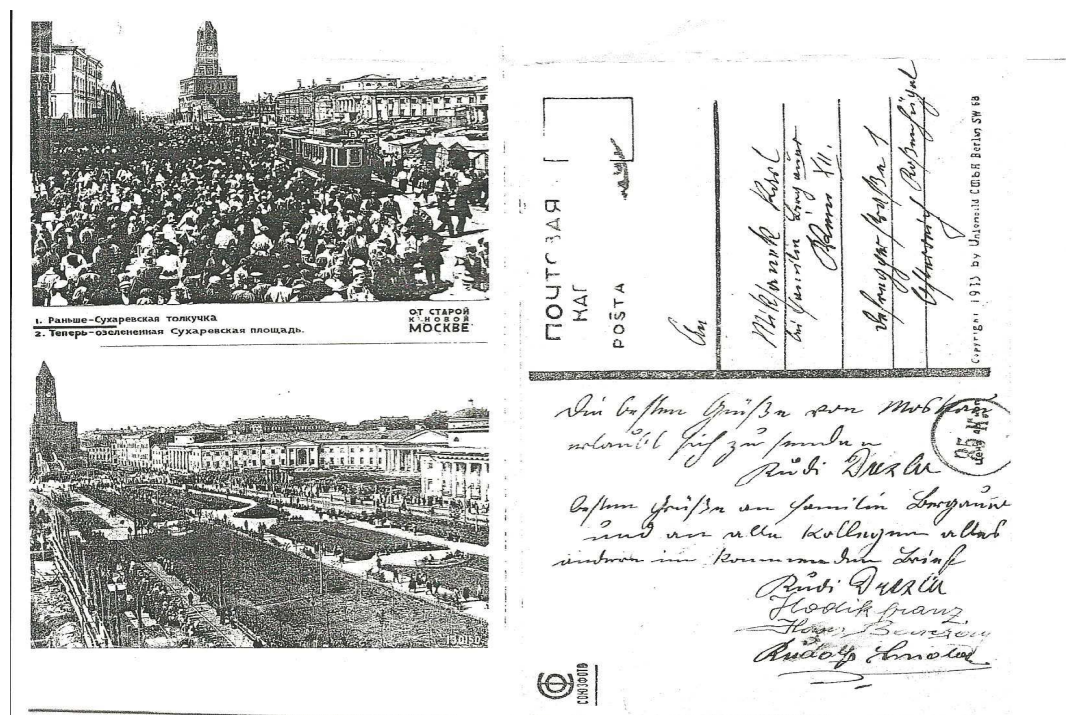 1. Раньше-Сухаревская толкучка
2. Теперь-озелененная Сухаревская площадь.
ОТ СТАРОЙ
К НОВОЙ
МОСКВЕ
130150
ПОЧТ ВАЯ
КАГ
POŠTA
An
Miklanek Karl
bei Familie Bergauer
Wien XII.
Österreich
Copyright 1933 by Unionbild GmbH Berlin SW 68
Die besten Grüße von Moskau
erlaubt sich zu senden
Rudi
besten Grüße an Familie Bergauer
und an alle Kollegen alles
andere im kommenden Brief
Rudi
Hladik Franz
Hans
Rudolf
35
СОЮЗФОТО